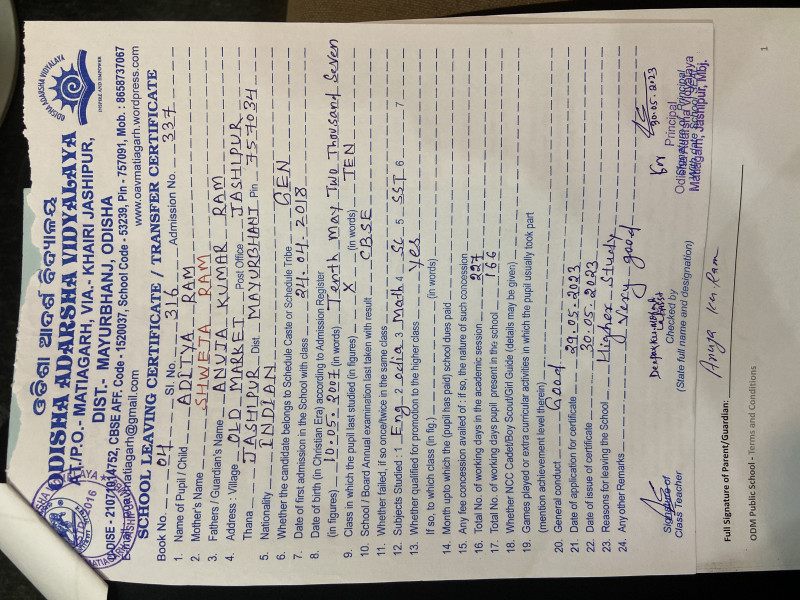 ଓଡ଼ିଶା ଆଦର୍ଶ ବିଦ୍ୟାଳୟ
ODISHA ADARSHA VIDYALAYA
ODISHA ADARSHA VIDYALAYA
INSPIRE AND EMPOWER
AT./P.O.- MATIAGARH, VIA.- KHAIRI JASHIPUR,
DIST.- MAYURBHANJ, ODISHA
UDISE - 21071314752, CBSE AFF. Code - 1520037, School Code - 53239, Pin - 757091, Mob. : 8658737067
matiagarh@gmail.com www.oavmatiagarh.wordpress.com
SCHOOL LEAVING CERTIFICATE / TRANSFER CERTIFICATE
Book No. 04 Sl. No. 316 Admission No. 337
1. Name of Pupil / Child ADITYA RAM
2. Mother's Name SHWEJA RAM
3. Fathers / Guardian's Name ANUJA KUMAR RAM
4. Address : Village OLD MARKET Post Office JASHIPUR
Thana JASHIPUR Dist. MAYURBHANJ Pin 757034
5. Nationality INDIAN
6. Whether the candidate belongs to Schedule Caste or Schedule Tribe GEN
7. Date of first admission in the School with class 24.04.2018
8. Date of birth (in Christian Era) according to Admission Register
(in figures) 10.05.2007 (in words) Tenth may Two Thousand Seven
9. Class in which the pupil last studied (in figures) X (in words) TEN
10. School / Board Annual examination last taken with result CBSE
11. Whether failed, if so once/twice in the same class
12. Subjects Studied : 1 Eng 2 odia 3 Math 4 Sc 5 SST 6 7
13. Whether qualified for promotion to the higher class Yes
If so, to which class (in fig.) (in words)
14. Month upto which the (pupil has paid) school dues paid
15. Any fee concession availed of : if so, the nature of such concession
16. Total No. of working days in the academic session 227
17. Total No. of working days pupil present in the school 166
18. Whether NCC Cadet/Boy Scout/Girl Guide (details may be given)
19. Games played or extra curricular activities in which the pupil usually took part
(mention achievement level therein)
20. General conduct Good
21. Date of application for certificate 29.05.2023
22. Date of issue of certificate 30.05.2023
23. Reasons for leaving the School Higher Study
24. Any other Remarks Very good
Signature of
Class Teacher
Checked by
(State full name and designation)
for
30.05.2023
Principal
Signature of Principal
With date School Seal
Odisha Adarsha Vidyalaya
Matiagarh, Jashipur, Mbj.
Full Signature of Parent/Guardian: Anuja Ku Ram
ODM Public School - Terms and Conditions
1